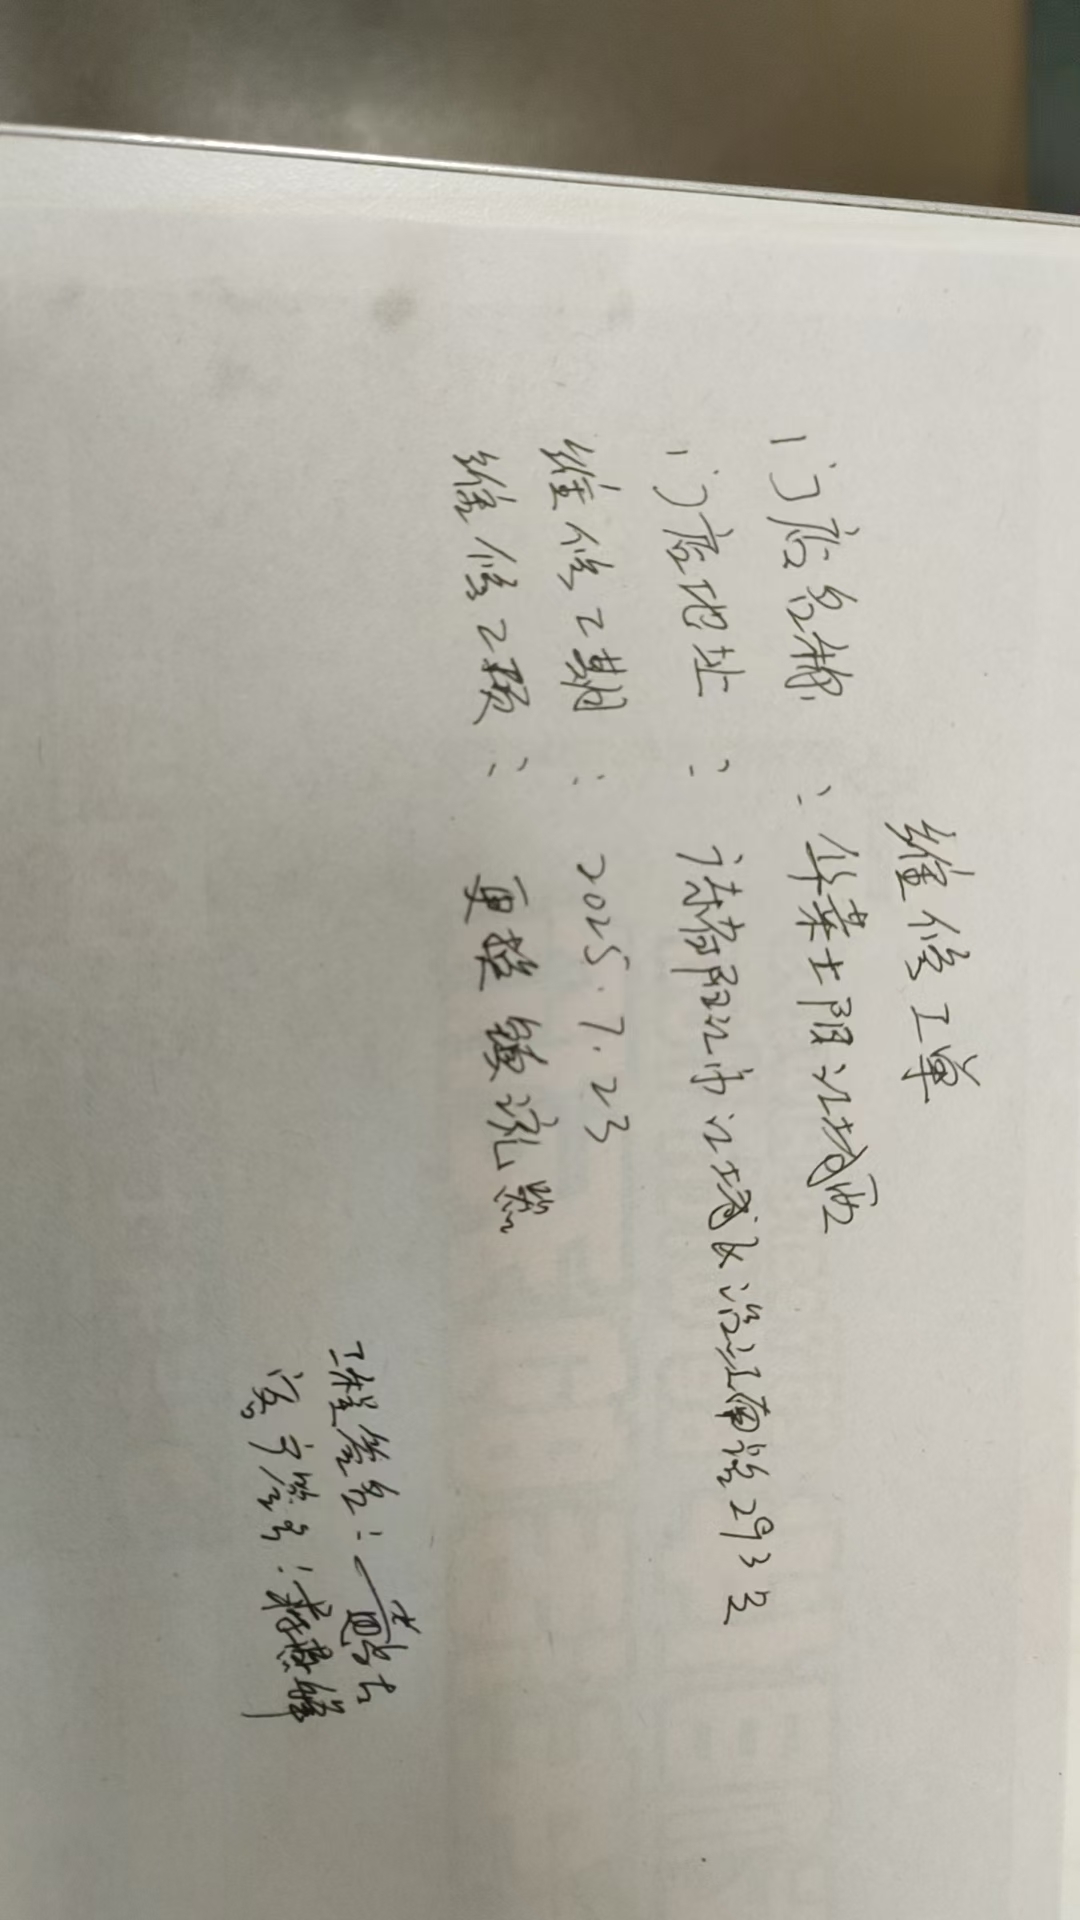 维修工单
门店名称：华莱士阳江城西
门店地址：广东省阳江市江城区治江南路293号
维修工期：2025.7.23
维修工项：更换镇流器
工程签名：
客户签名：